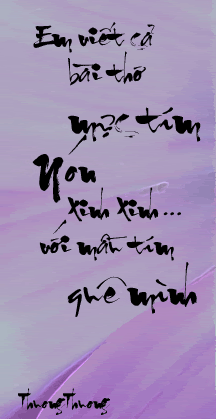 Em viết cả
bài thơ
mực tím
Nón
xinh xinh...
với mần tím
quê mình
ThuongThuong